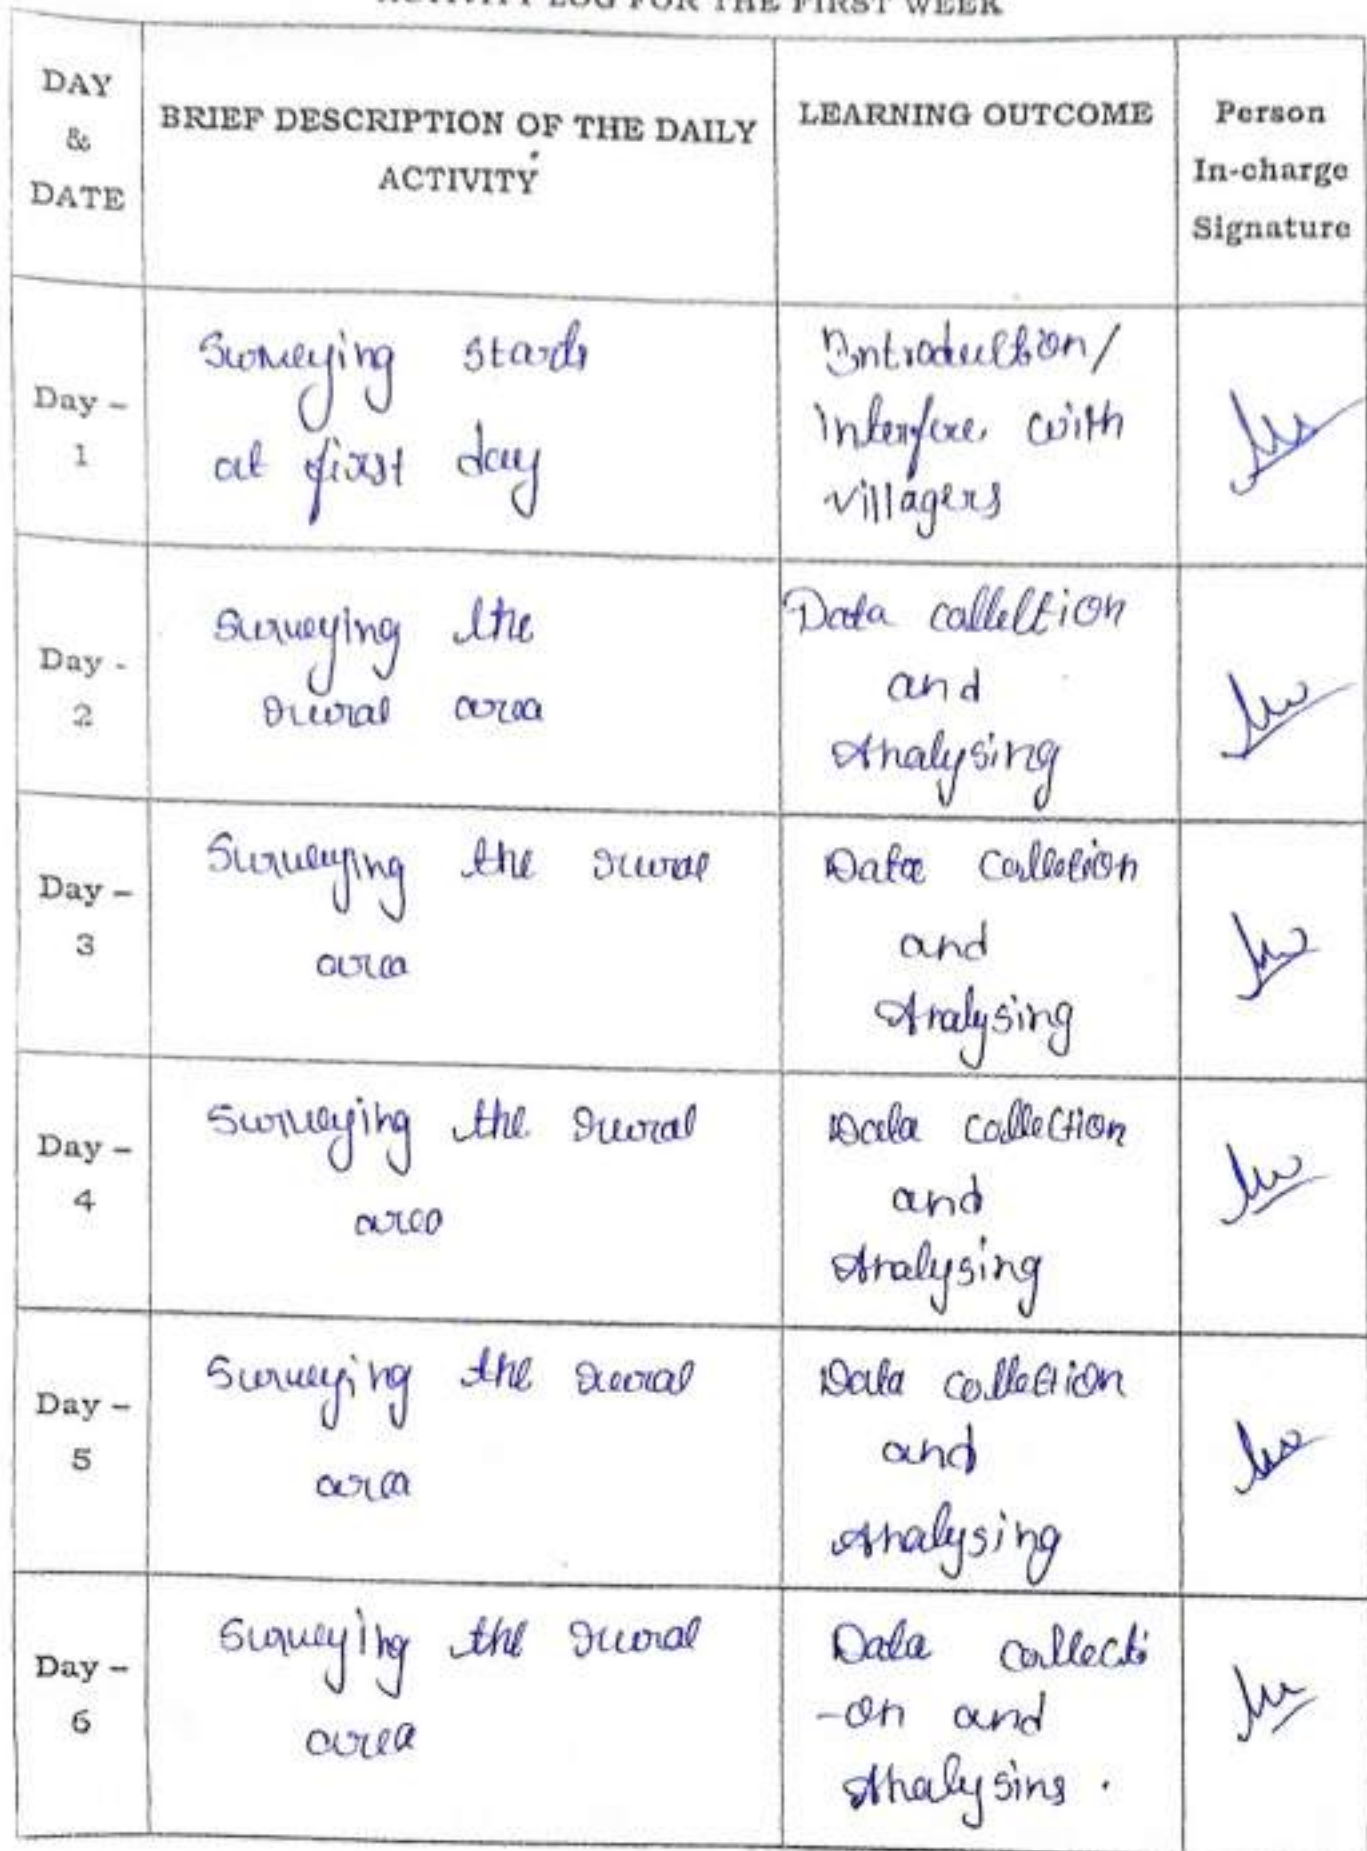 ACTIVITY LOG FOR THE FIRST WEEK
DAY
&
DATE
BRIEF DESCRIPTION OF THE DAILY
ACTIVITY
LEARNING OUTCOME
Person
In-charge
Signature
Day –
1
Surveying starts
at first day
Introduction/
interfere with
villagers
Day -
2
Surveying the
rural area
Data collection
and
Analysing
Day –
3
Surveying the rural
area
Data colletion
and
Analysing
Day –
4
Surveying the rural
area
Data collection
and
Analysing
Day –
5
Surveying the rural
area
Data collection
and
Analysing
Day –
6
Surveying the rural
area
Data collecti
-on and
Analysing .